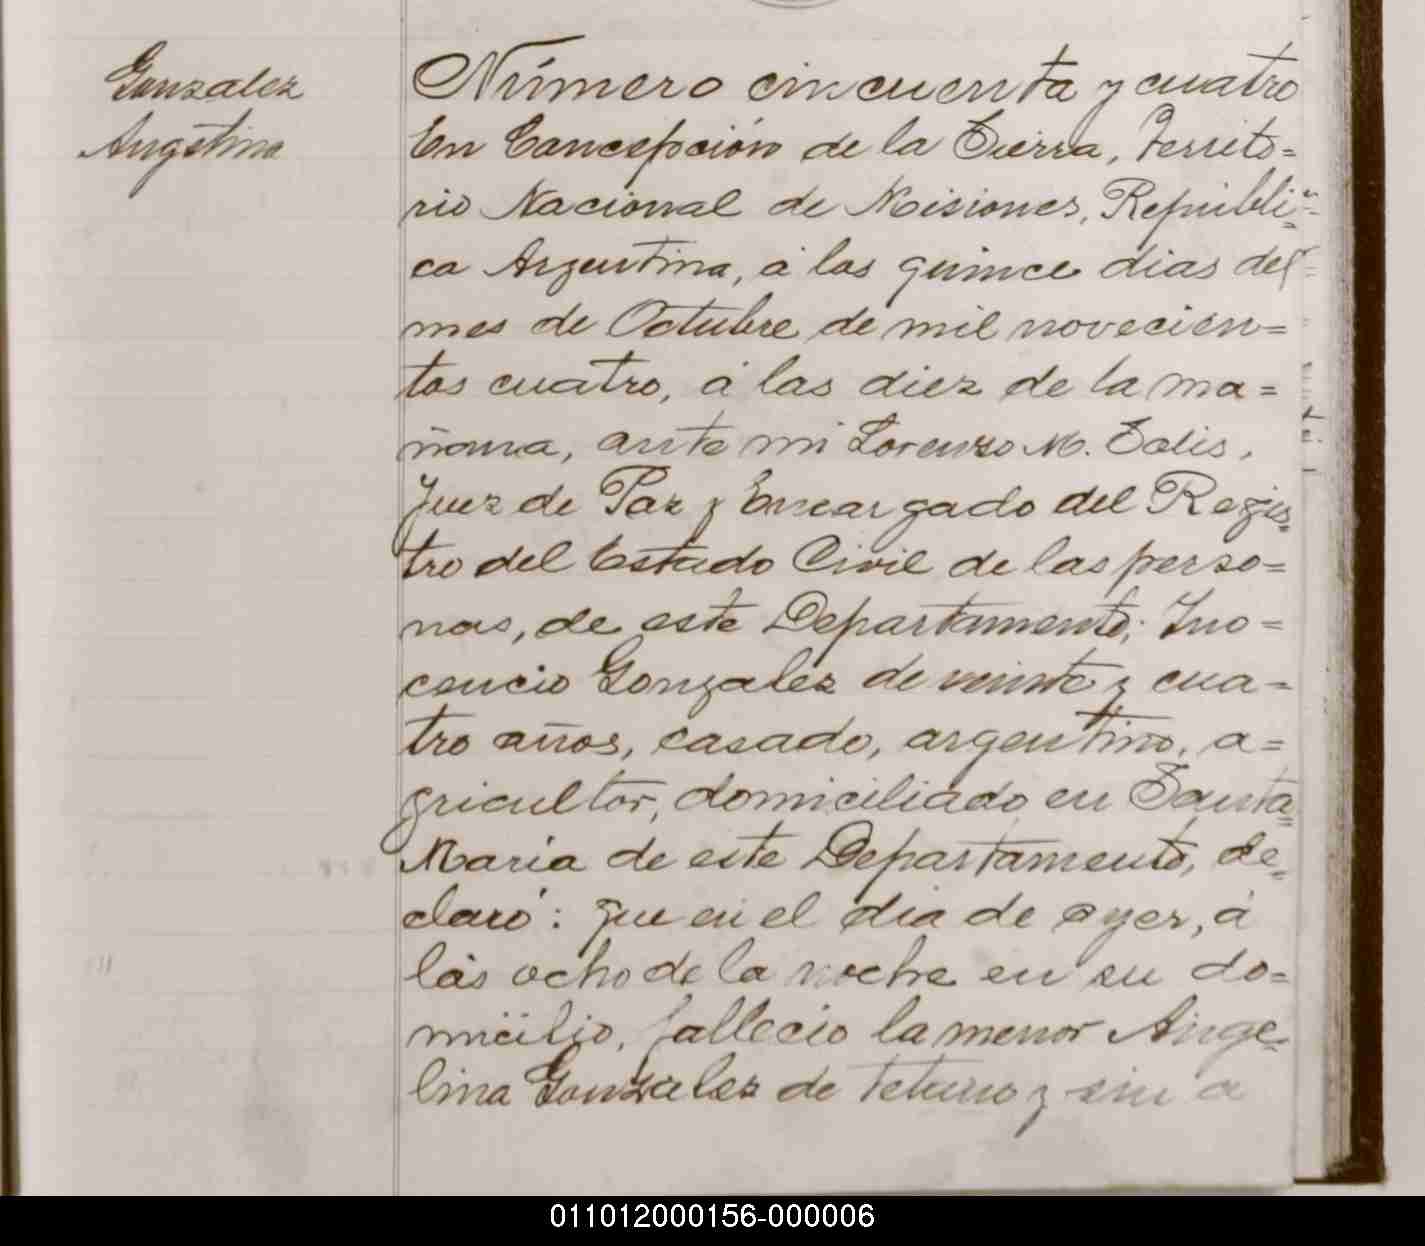 Gonzalez
Angelina
Número cincuenta y cuatro
En Concepción de la Sierra, Territo=
rio Nacional de Misiones, Républi=
ca Argentina, á los quince dias del
mes de Octubre de mil novecien=
tos cuatro, á las diez de la ma=
ñana, ante mi Lorenzo M. Solis,
Juez de Paz y Encargado del Regis=
tro del Estado Civil de las perso=
nas, de este Departamento; Ino=
cencio Gonzalez de veinte y cua=
tro años, casado, argentino, a=
gricultor, domiciliado en Santa
Maria de este Departamento, de=
claró: que en el dia de ayer, á
las ocho de la noche en su do=
micilio, fallecio la menor Ange=
lina Gonzalez de tetano y sin a
011012000156-000006